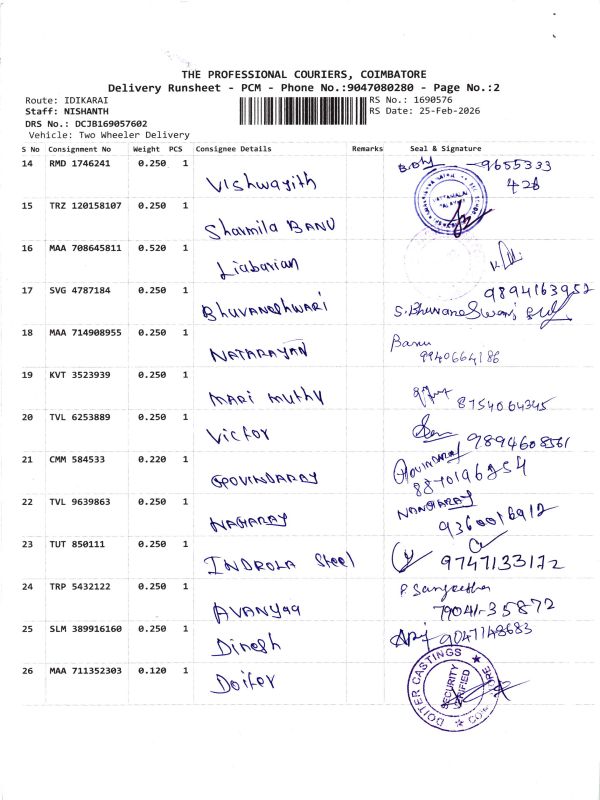 THE PROFESSIONAL COURIERS, COIMBATORE
Delivery Runsheet - PCM - Phone No.:9047080280 - Page No.:2
Route: IDIKARAI RS No.: 1690576
Staff: NISHANTH RS Date: 25-Feb-2026
DRS No.: DCJB169057602
Vehicle: Two Wheeler Delivery
S No Consignment No Weight PCS Consignee Details Remarks Seal & Signature
14 RMD 1746241 0.250 1 Vishwayith 9655333
428
15 TRZ 120158107 0.250 1 Sharmila BANU
16 MAA 708645811 0.520 1 Liabarian
17 SVG 4787184 0.250 1 Bhuvaneshwari 9894163952
S. Bhuvaneswari
18 MAA 714908955 0.250 1 NATARAYAN Banu
9940664186
19 KVT 3523939 0.250 1 MARI MUTHU 8754064345
20 TVL 6253889 0.250 1 Victor 9894608561
21 CMM 584533 0.220 1 GPOVINDARAY GOVINDARAJ
8870196254
22 TVL 9639863 0.250 1 NAGARAY NANGARAJ
9360016912
23 TUT 850111 0.250 1 INDROLA Steel 9747133172
24 TRP 5432122 0.250 1 AVANYAA P Sangeetha
79041-35872
25 SLM 389916160 0.250 1 Dinesh 9047148683
26 MAA 711352303 0.120 1 Doiter DOITER CASTINGS
SECURITY
VERIFIED